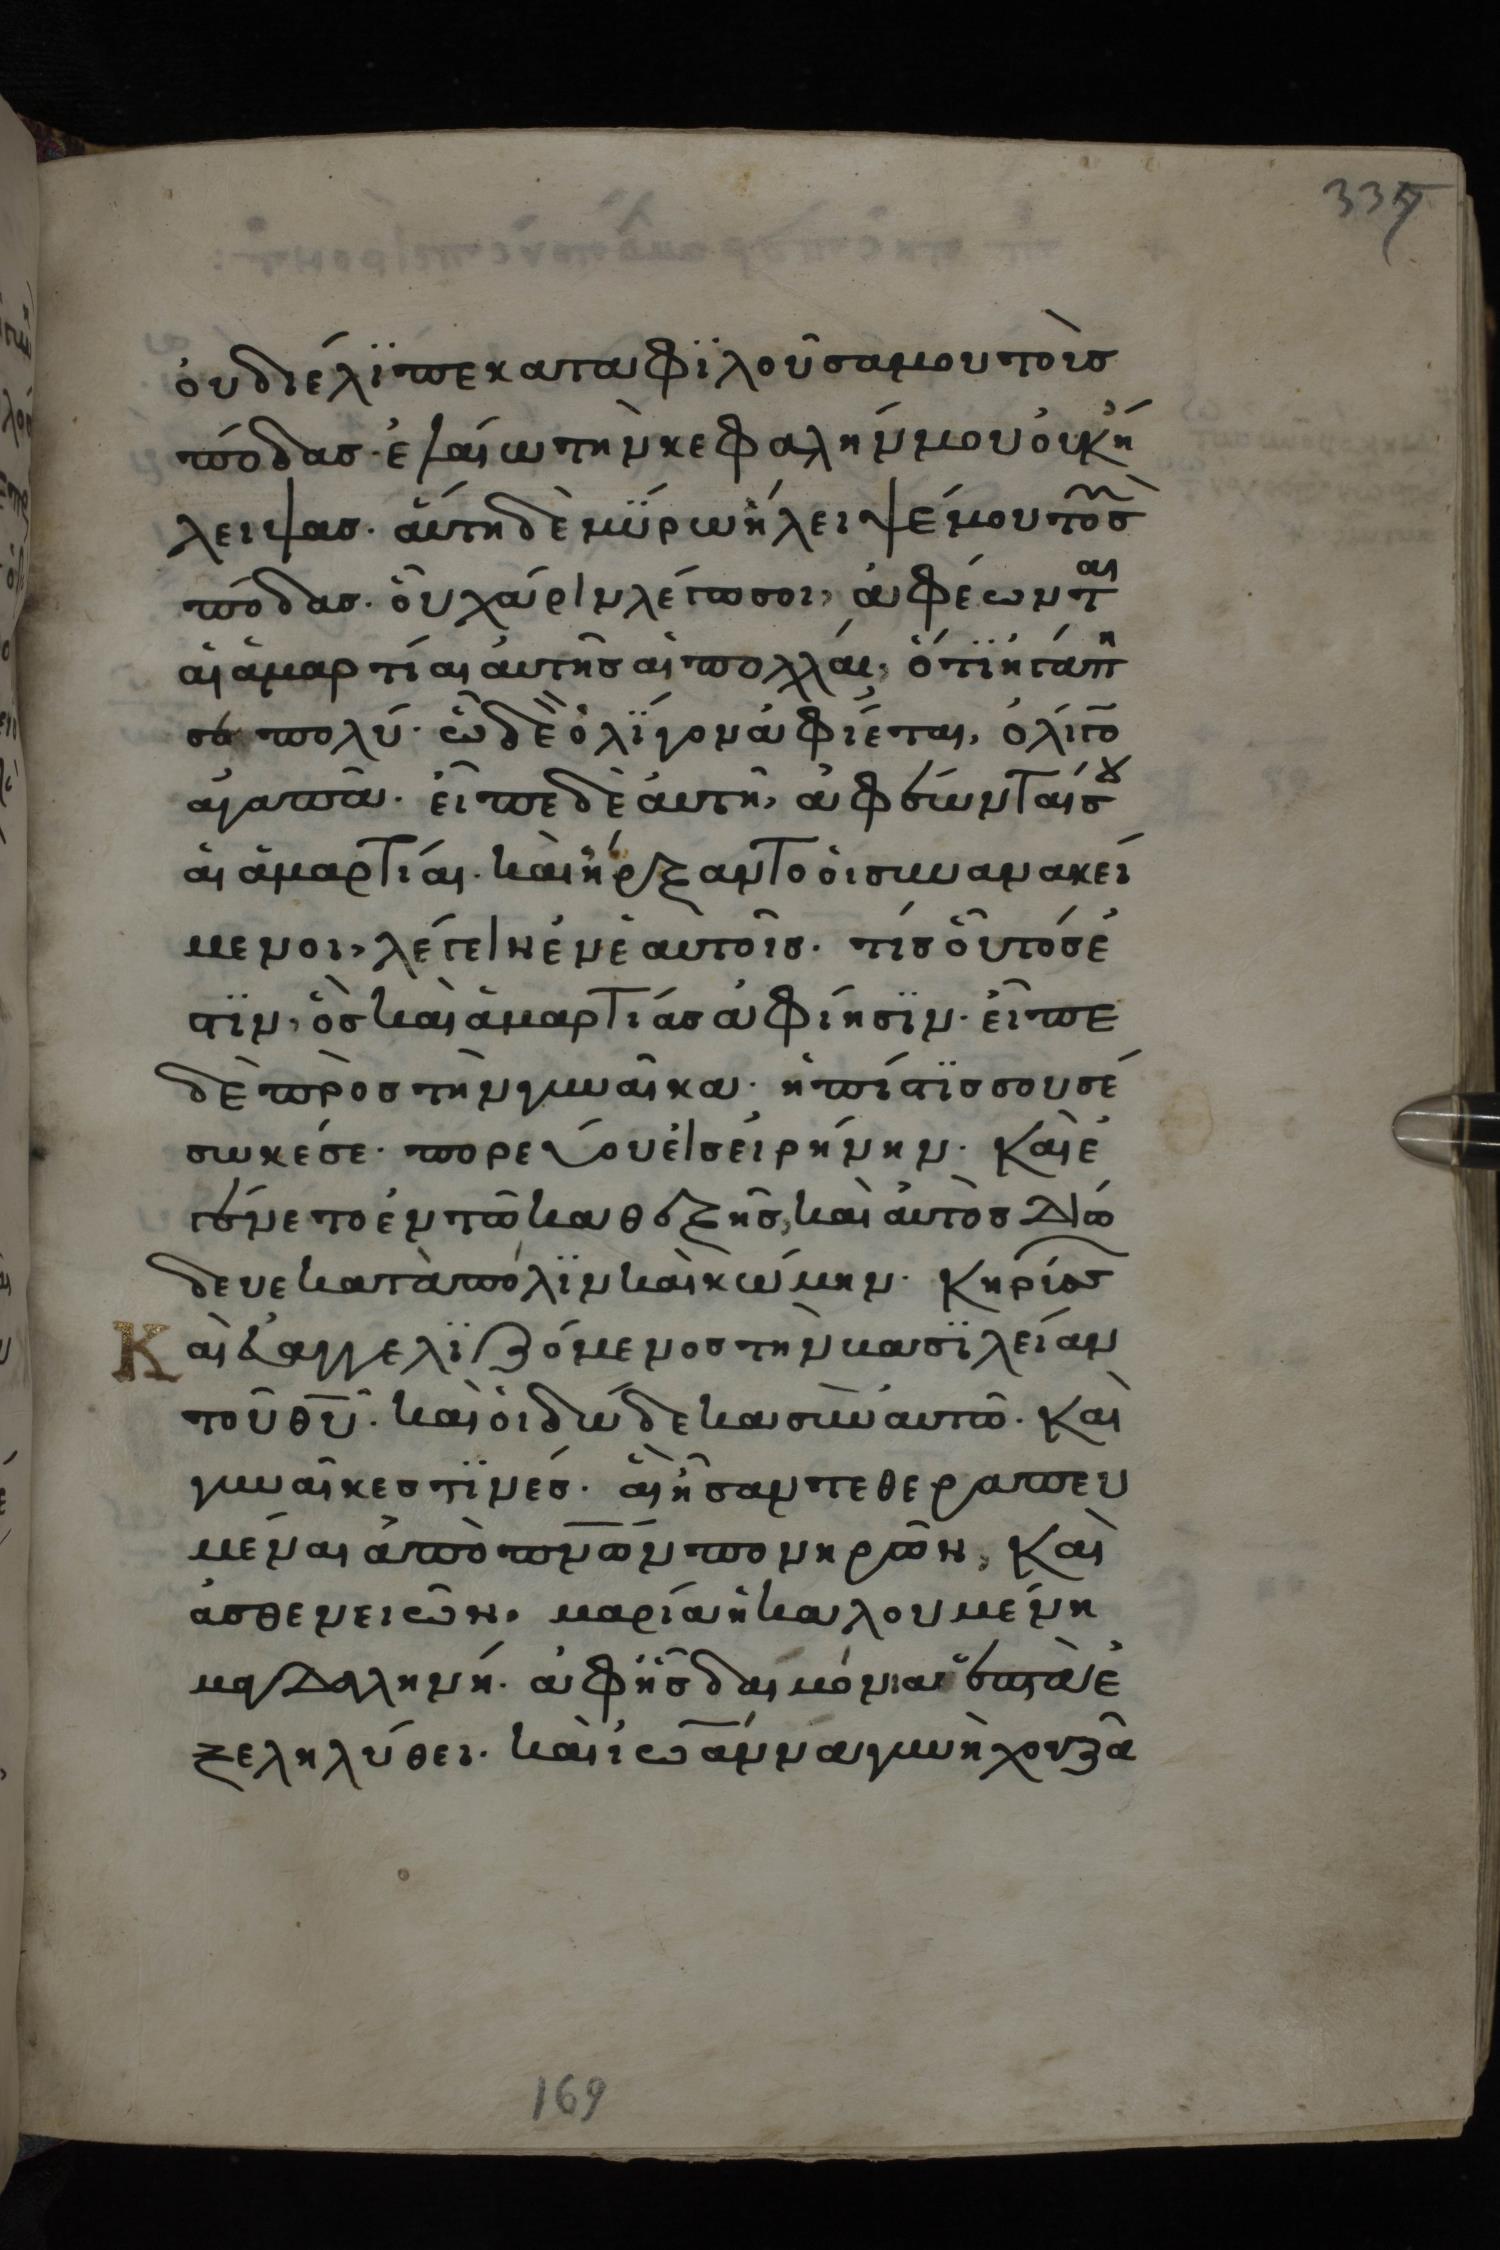 337
οὐ διέλϊπε καταφϊλοῦσα μου τοὺσ
πόδασ· ἐλαίω τὴν κεφαλήν μου οὐκ ἤ
λειψασ· ἅυτη δὲ μύρω ἤλειψέ μου τοὺσ
πόδασ· ὃυ χάριν λέγω σοι, ἀφέωνται
ἁι ἁμαρτίαι ἀυτῆσ ἁι πολλάι, ὅτϊ ἠγάπη
σε πολύ· ὧ δὲ ὀλϊγον ἀφίεται, ὀλίγον
ἀγαπᾶ· εἶπε δὲ ἀυτῆ, ἀφέωνται σου
ἁι ἁμαρτίαι· καὶ ἤρξαντο ὁι συνανακεί
μενοι, λέγειν ἐν ἑαυτοῖσ· τίσ οὗτόσ ἐ
στϊν, ὃσ καὶ ἁμαρτίασ ἀφίησϊν· εἶπε
δὲ πρὸσ τὴν γυναῖκα· ἡ πίστϊσ σου σέ
σωκέ σε· πορεύου εἰσ εἰρήνην· Καὶ ἐ
γένετο ἐν τῶ καθεξῆσ, καὶ ἀυτὸσ διώ
δευε κατὰ πόλϊν καὶ κώμην· κηρύσσων
Καὶ ἐυαγγελϊζόμενοσ τὴν βασϊλείαν
τοῦ θυ· καὶ ὁι δώδεκα σὺν ἀυτῶ· Καὶ
γυναῖκεσ τϊνέσ· ἃι ἦσαν τεθεραπευ
μέναι ἀπὸ πνων πονηρῶν, Καὶ
ἀσθενειῶν· μαρία ἡ καλουμένη
μαγδαληνή· ἀφ ἧσ δαιμόνια ἑπτὰ ἐ
ξεληλύθει· καὶ ἰωάννα γυνὴ χουζᾶ
169